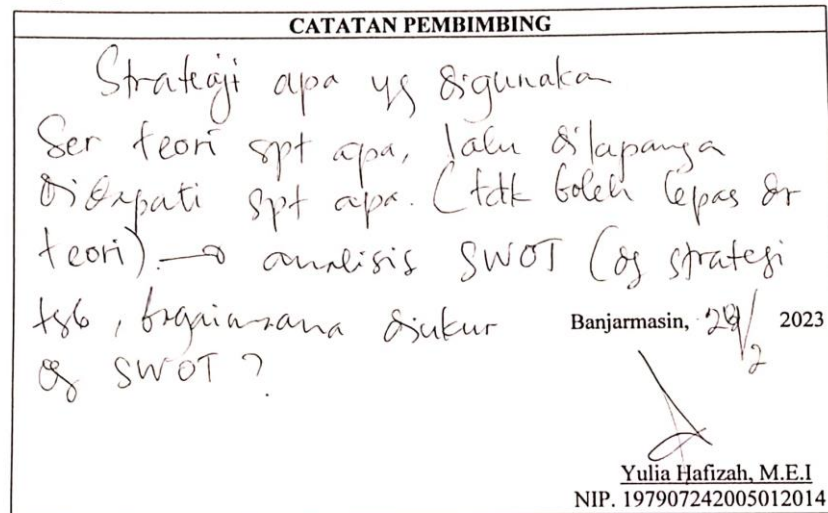 CATATAN PEMBIMBING
Strategi apa yg digunaka
Ser teori spt apa, lalu dilapanga
didapati spt apa. (tdk boleh lepas dr
teori). → analisis SWOT (dg strategi
tsb, bagaimana diukur
dg SWOT ?
Banjarmasin, /2 2023
Yulia Hafizah, M.E.I
NIP. 197907242005012014